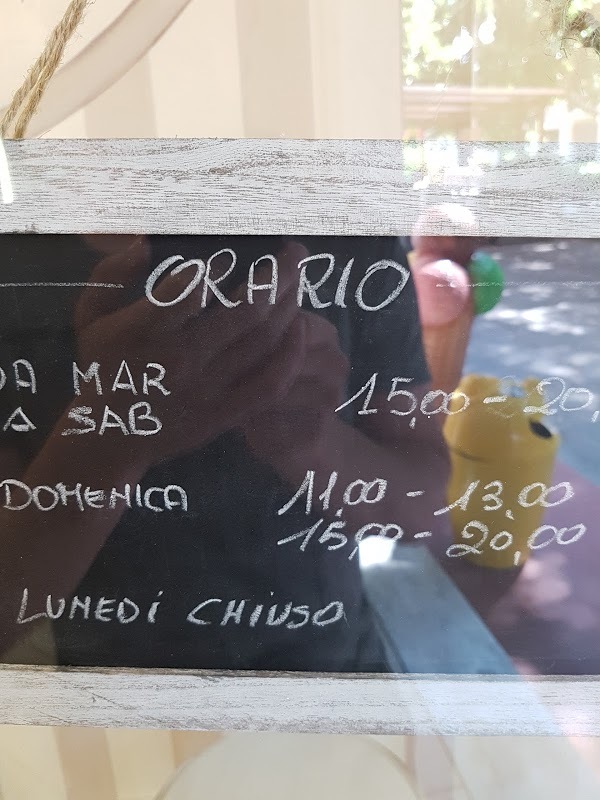 ORARIO
DA MAR 15,00 - 20,
A SAB
DOMENICA 11,00 - 13,00
15,00 - 20,00
LUNEDÍ CHIUSO